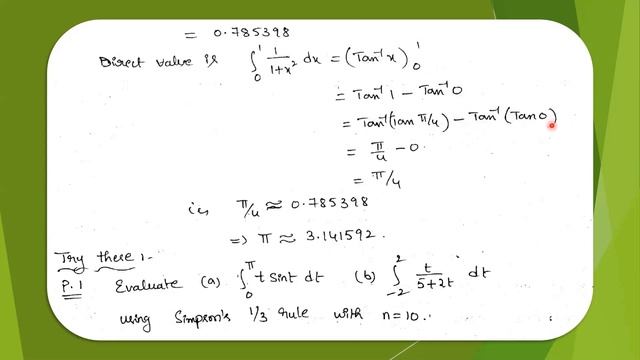 = 0.785398
Direct value is ∫₀¹ 1/(1+x²) dx = (Tan⁻¹x)₀¹
= Tan⁻¹1 − Tan⁻¹0
= Tan⁻¹(Tan π/4) − Tan⁻¹(Tan 0)
= π/4 − 0
= π/4
i.e, π/4 ≈ 0.785398
⇒ π ≈ 3.141592.
Try these:-
P.1 Evaluate (a) ∫₀^π t sint dt (b) ∫₋₂² t/(5+2t) dt
using Simpson's 1/3 rule with n=10.